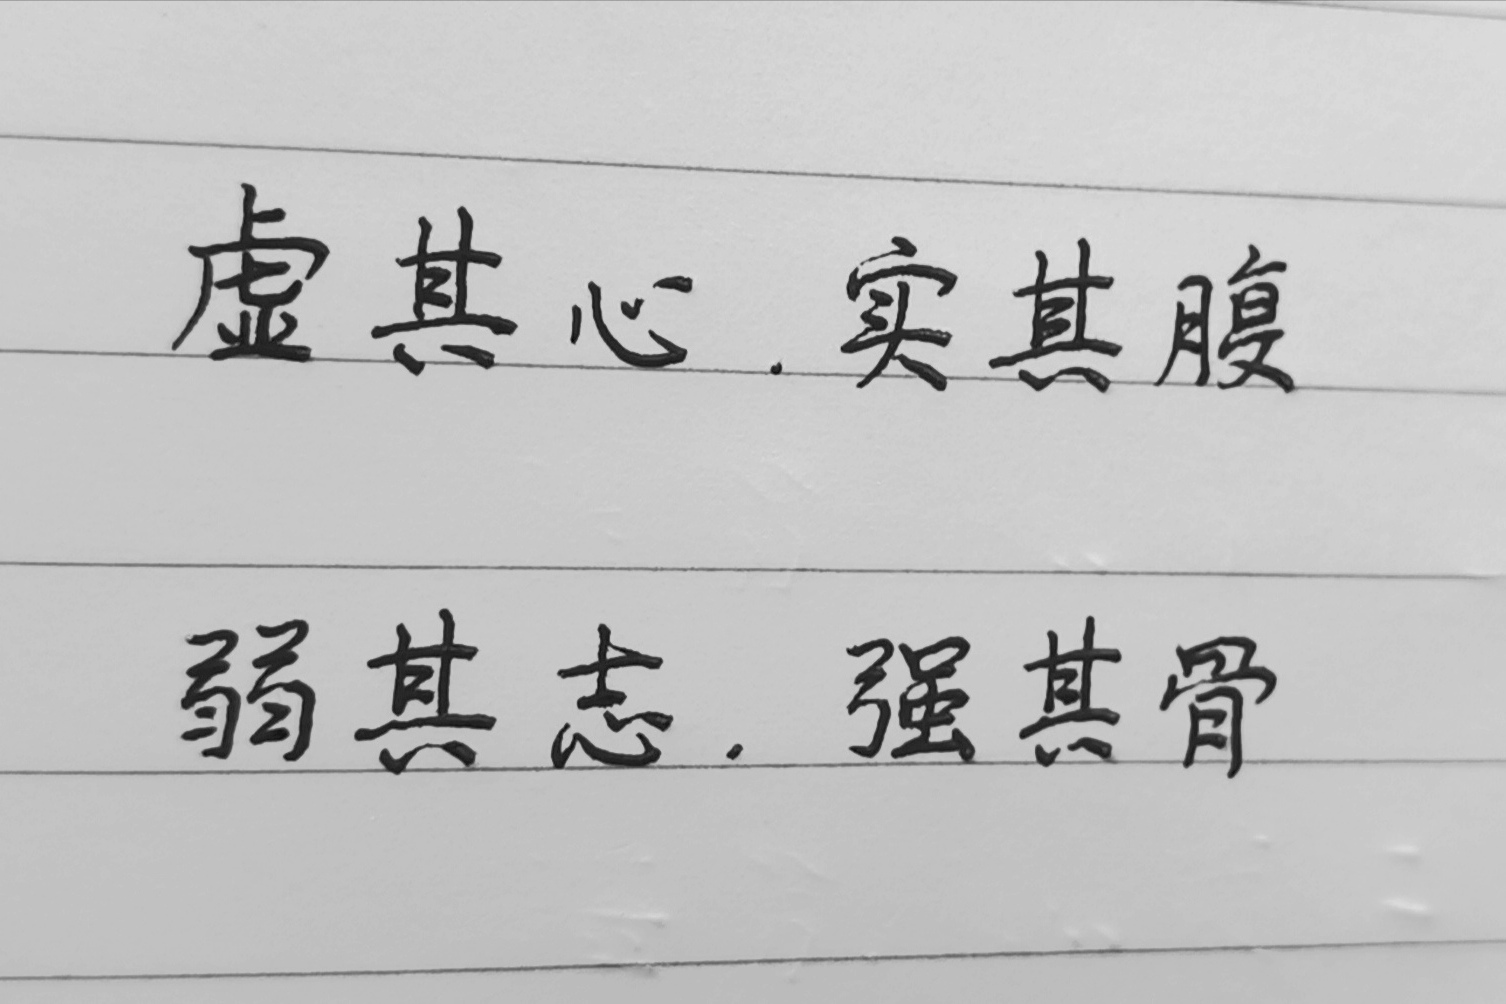 虚其心.实其腹
弱其志.强其骨